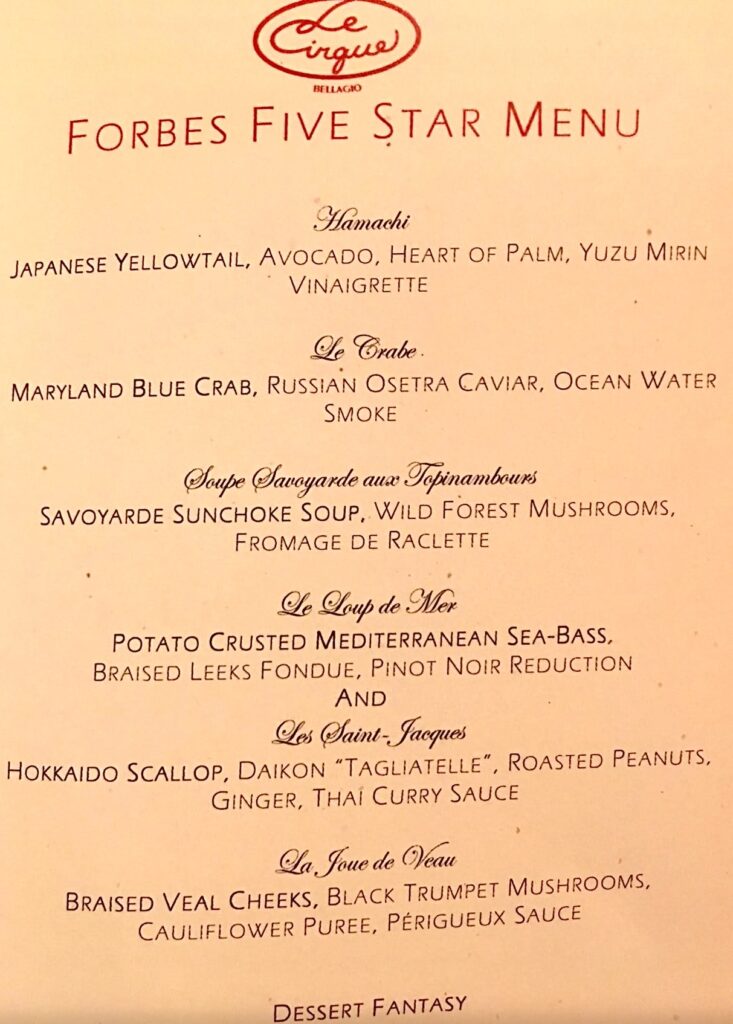 Le
Cirque
BELLAGIO
FORBES FIVE STAR MENU
Hamachi
JAPANESE YELLOWTAIL, AVOCADO, HEART OF PALM, YUZU MIRIN
VINAIGRETTE
Le Crabe
MARYLAND BLUE CRAB, RUSSIAN OSETRA CAVIAR, OCEAN WATER
SMOKE
Soupe Savoyarde aux Topinambours
SAVOYARDE SUNCHOKE SOUP, WILD FOREST MUSHROOMS,
FROMAGE DE RACLETTE
Le Loup de Mer
POTATO CRUSTED MEDITERRANEAN SEA-BASS,
BRAISED LEEKS FONDUE, PINOT NOIR REDUCTION
AND
Les Saint-Jacques
HOKKAIDO SCALLOP, DAIKON “TAGLIATELLE”, ROASTED PEANUTS,
GINGER, THAI CURRY SAUCE
La Joue de Veau
BRAISED VEAL CHEEKS, BLACK TRUMPET MUSHROOMS,
CAULIFLOWER PUREE, PÉRIGUEUX SAUCE
DESSERT FANTASY